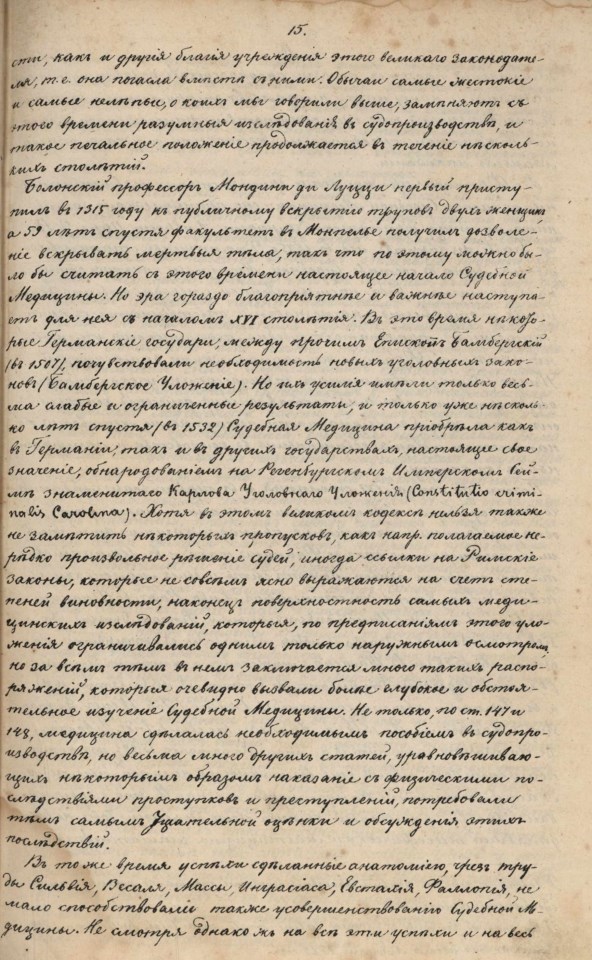 15.
сти, какъ и другія благія учрежденія этого великаго законодате-
ля, т.е. она погасла вмѣстѣ съ ними. Обычаи самые жестокіе
и самые нелѣпые, о коихъ мы говорили выше, замѣняютъ съ
этого времени разумныя изслѣдованія въ судопроизводствѣ, и
такое печальное положеніе продолжается въ теченіе нѣсколь-
кихъ столѣтій.
Болонскій профессоръ Мондини ди Луцци первый присту-
пилъ въ 1315 году къ публичному вскрытію труповъ двухъ женщинъ
а 59 лѣтъ спустя факультетъ въ Монпелье получилъ дозволе-
ніе вскрывать мертвыя тѣла, такъ что по этому можно бы-
ло бы считать съ этого времени настоящее начало Судебной
Медицины. Но эра гораздо благопріятнѣе и важнѣе наступа-
етъ для нея съ началомъ XVI столѣтія. Въ это время нѣкото-
рые Германскіе государи, между прочимъ Епископъ Бамбергскій
(въ 1507), почувствовали необходимость новыхъ уголовныхъ зако-
новъ (Бамбергское Уложеніе). Но ихъ усилія имѣли только весь-
ма слабые и ограниченные результаты, и только уже нѣсколь-
ко лѣтъ спустя (въ 1532) Судебная Медицина пріобрѣла какъ
въ Германіи, такъ и въ другихъ государствахъ, настоящее свое
значеніе, обнародованіемъ на Регенбургскомъ Имперскомъ Сей-
мѣ знаменитаго Карлова Уголовнаго Уложенія (Constitutio crimi-
nalis Carolina). Хотя въ этомъ великомъ кодексѣ нельзя также
не замѣтить нѣкоторыхъ пропусковъ, какъ напр. полагаемое не-
рѣдко произвольное рѣшеніе судей, иногда ссылки на Римскіе
законы, которые не совсѣмъ ясно выражаются на счетъ сте-
пеней виновности, наконецъ поверхностность самыхъ меди-
цинскихъ изслѣдованій, которыя, по предписаніямъ этого уло-
женія ограничивались однимъ только наружнымъ осмотромъ,
но за всѣмъ тѣмъ въ немъ заключается много такихъ распо-
ряженій, которыя очевидно вызвали болѣе глубокое и обстоя-
тельное изученіе Судебной Медицины. Не только, по ст. 147 и
148, медицина сдѣлалась необходимымъ пособіемъ въ судопро-
изводствѣ, но весьма много другихъ статей, уравновѣшиваю-
щихъ нѣкоторымъ образомъ наказаніе съ физическими по-
слѣдствіями проступковъ и преступленій, потребовали
тѣмъ самымъ тщательной оцѣнки и обсужденія этихъ
послѣдствій.
Въ тоже время успѣхи сдѣланные анатоміею, чрезъ тру-
ды Сильвія, Весаля, Массы, Инграсіаса, Евстахія, Фаллопія, не
мало способствовали также усовершенствованію Судебной Ме-
дицины. Не смотря однакожъ на всѣ эти успѣхи и на весь